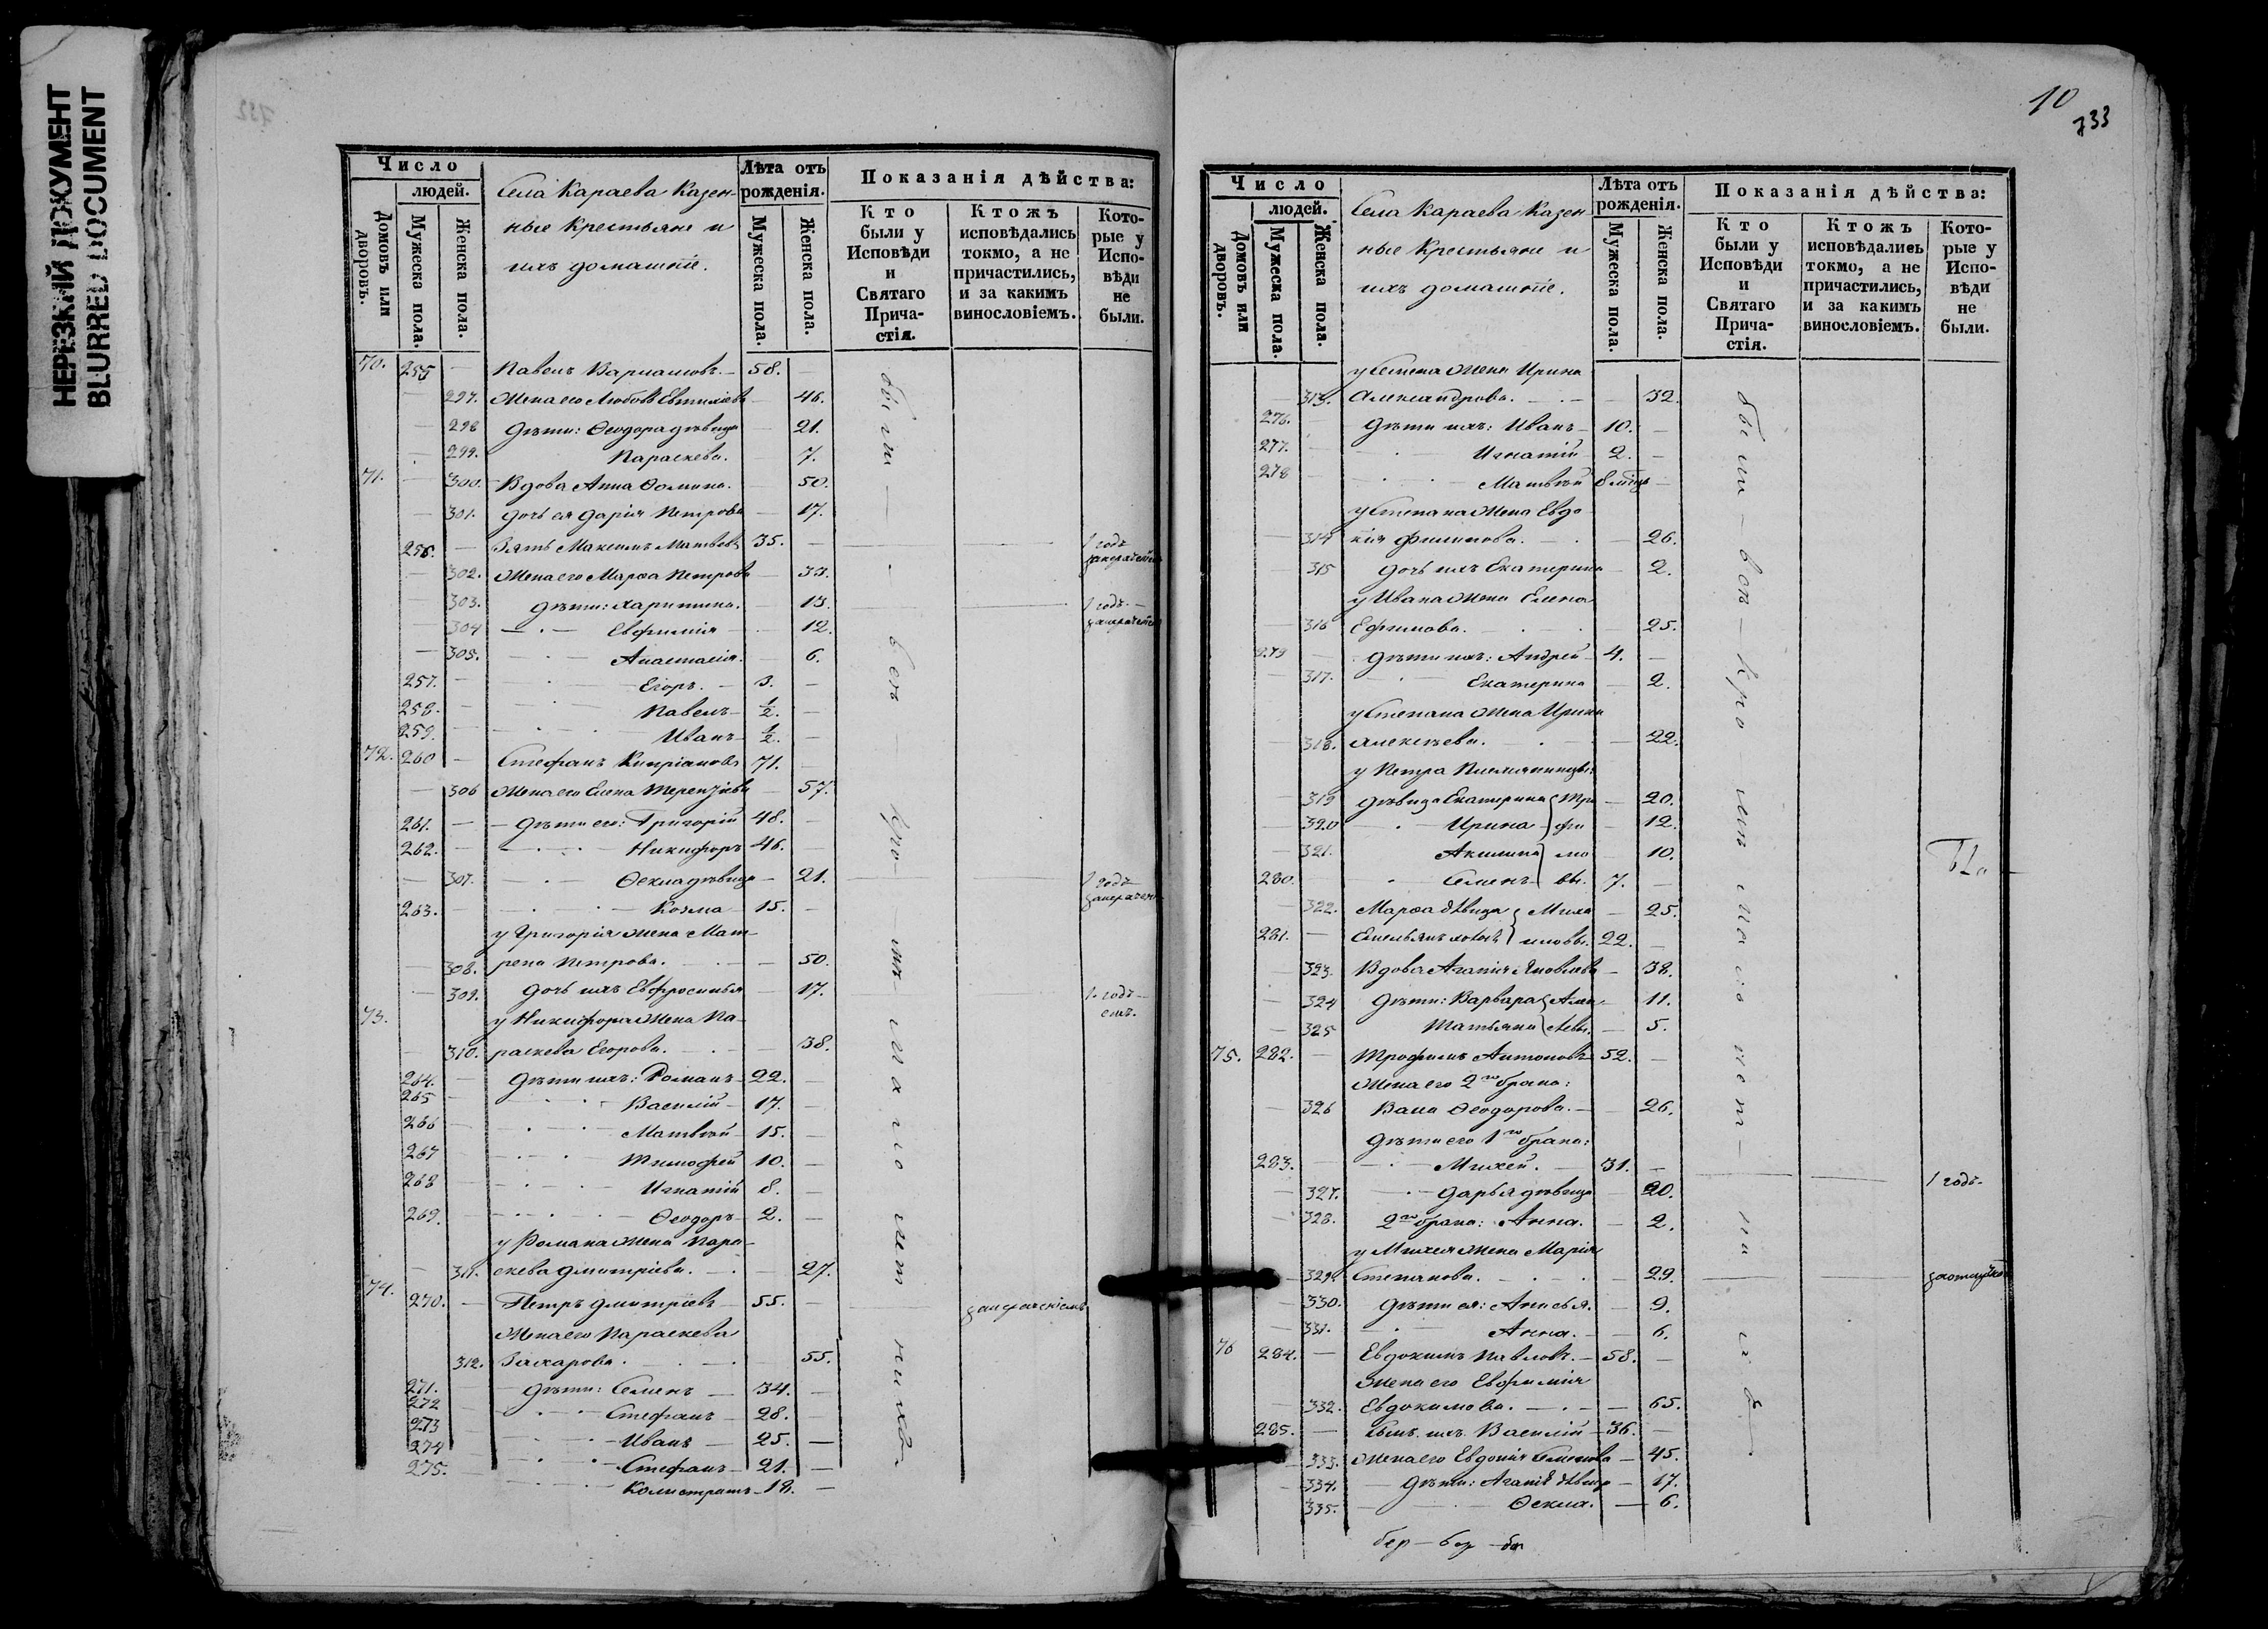 НЕРЕЗКИЙ ДОКУМЕНТ
BLURRED DOCUMENT
732
Число
людей.
Домовъ или дворовъ.
Мужеска пола.
Женска пола.
Села Караева Казен-
ные Крестьяне и
ихъ домашніе.
Лѣта отъ рожденія.
Мужеска пола.
Женска пола.
Показанія дѣйства:
Кто были у Исповѣди и Святаго Прича-стія.
Ктожъ исповѣдались токмо, а не причастились, и за какимъ винословіемъ.
Кото-рые у Испо-вѣди не были.
70. 255 — Павелъ Варламовъ. — 58. —
— 297. Жена его Любовь Евтихіева — 46.
— 298 Дѣти: Ѳеодора дѣвица — 21.
— 299. Параскева. — 7.
71. — 300. Вдова Анна Ѳомина. — 50.
— 301. Дочь ея Дарія Петрова — 17.
256. — Зять Максимъ Матвѣевъ 35. — 1 годъ
— 302. Жена его Марѳа Петрова — 33.
— 303. Дѣти: Харитина. — 13. 1 годъ —
— 304 Евфимія — 12.
— 305. Анастасія. — 6.
257. — Егоръ. — 3. —
258. — Павелъ — 1/2. —
259. — Иванъ — 1/2. —
72. 260 — Стефанъ Кипріановъ 71. —
— 306 Жена его Елена Терентіева — 57.
261. — Дѣти его: Григорій 48. —
262. — Никифоръ 46. —
— 307. Ѳекла дѣвица — 21. 1 годъ
263. — Козма — 15. —
у Григорія жена Мат-
— 308. рена Петрова. — 50.
— 309. Дочь ихъ Евфросинья — 17. 1. годъ —
73. у Никифора жена Па-
— 310. раскева Егорова. — 38.
264. — Дѣти ихъ: Романъ — 22. —
265 — Василій — 17. —
266 — Матвѣй — 15. —
267 — Тимофей 10. —
268 — Игнатій 8. —
269. — Ѳеодоръ — 2. —
у Романа жена Пара-
— 311. скева Дмитріева. — 27.
74. 270. — Петръ Дмитріевъ — 55. —
Жена его Параскева
312. Захарова. — 55.
271. — Дѣти: Семенъ — 34. —
272 — Стефанъ — 28. —
273 — Иванъ — 25. —
274 — Стефанъ — 21. —
275. — Калистратъ — 18. —
10
733
Число
людей.
Домовъ или дворовъ.
Мужеска пола.
Женска пола.
Села Караева Казен-
ные Крестьяне и
ихъ домашніе.
Лѣта отъ рожденія.
Мужеска пола.
Женска пола.
Показанія дѣйства:
Кто были у Исповѣди и Святаго Прича-стія.
Ктожъ исповѣдались токмо, а не причастились, и за какимъ винословіемъ.
Кото-рые у Испо-вѣди не были.
у Семена жена Ирина
— 313. Александрова. — 32.
276. — Дѣти ихъ: Иванъ — 10. —
277. — Игнатій — 2. —
278 — Матвѣй
у Степана жена Евдо
— 314 кія Филипова. — 26.
— 315 дочь ихъ Екатерина — 2.
у Ивана жена Елена
— 316 Ефимова. — 25.
279 — Дѣти ихъ: Андрей — 4. —
— 317. Екатерина — 2.
у Степана жена Ирина
— 318. Алексѣева. — 22.
у Петра Племянницы:
— 319 дѣвица Екатерина Тро — 20.
— 320 Ирина фи — 12.
— 321. Акилина мо — 10.
280. — Семенъ вы. 7. —
— 322. Марѳа дѣвица Миха — 25.
281. — Емельянъ иловы. 22. —
— 323. Вдова Агапія Яковлева — 38.
— 324 Дѣти: Варвара — 11.
— 325 Татьяна — 5.
75. 282. — Трофимъ Антоновъ 52. —
Жена его 2го брака:
— 326 Васа Ѳеодорова. — 26.
Дѣти его 1го брака:
283. — Михей. — 31. — 1 годъ.
— 327. Дарья дѣвица — 20.
— 328. 2го брака: Анна. — 2.
у Михея жена Марія
— 329. Степанова. — 29.
— 330. Дѣти ея: Анисья. — 9.
— 331. Анна. — 6.
76 284. — Евдокимъ Павловъ. — 58. —
Жена его Евфимія
— 332. Евдокимова. — 65.
285. — Сынъ ихъ Василій — 36. —
— 333. Жена его Евдокія Семенова — 45.
— 334. Дѣти: Агапія дѣвица — 17.
— 335. Ѳекла. — 6.